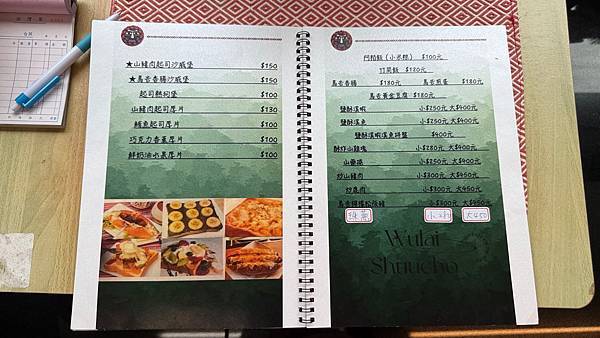 ★山豬肉起司沙威堡 $150
★馬告香腸沙威堡 $150
起司熱狗堡 $100
山豬肉起司厚片 $130
鮪魚起司厚片 $100
巧克力香蕉厚片 $100
鮮奶油水果厚片 $100
阿粨飯(小米粽) $100元
竹筒飯 $120元
馬告香腸 $180元 馬告煎蛋 $180元
馬告黃金豆腐 $180元
鹽酥溪蝦 小$250元 大$400元
鹽酥溪魚 小$250元 大$400元
鹽酥溪蝦溪魚拼盤 $400元
酥炸山雞塊 小$280元 大$400元
山藥捲 小$250元 大$400元
炒山豬肉 小$300元 大$450元
炒鹿肉 小$300元 大$450元
馬告檸檬松阪豬 小$300元 大$450元
大450
Wulai
Shuucho